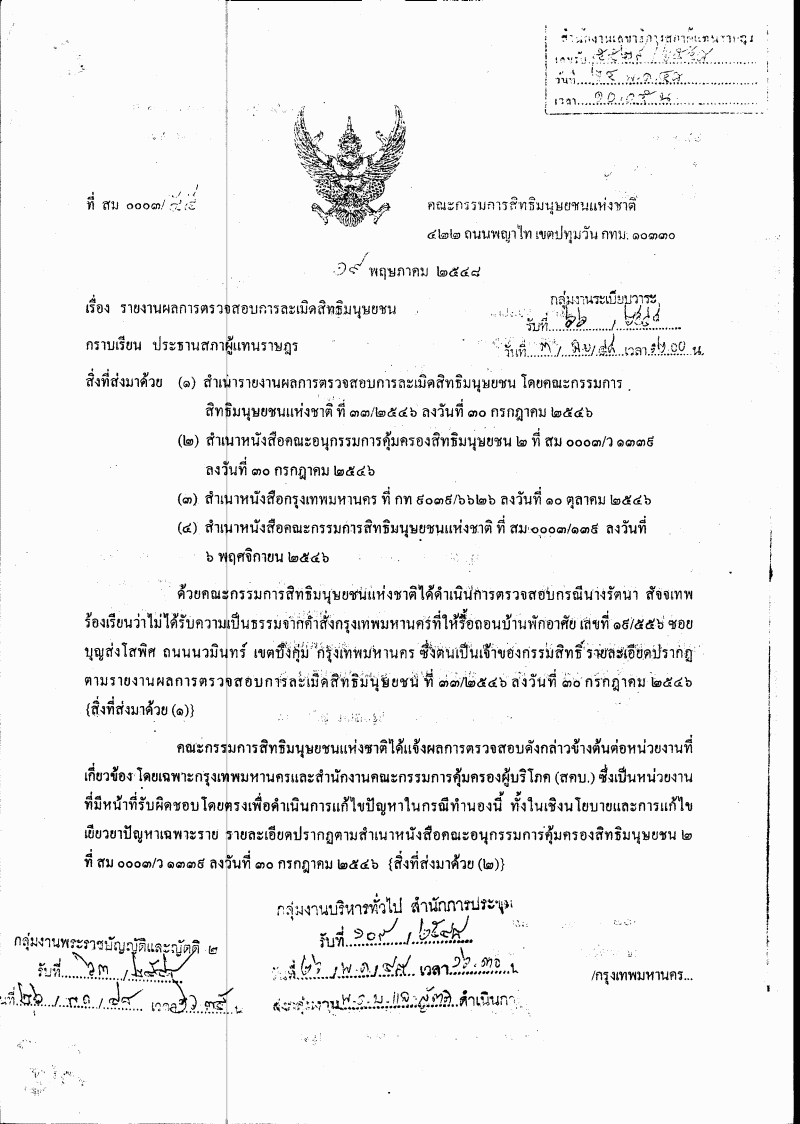 สำนักงานเลขาธิการสภาผู้แทนราษฎร
เลขรับ
วันที่ พ.ค. ๔๘
เวลา น
ที่ สม ๐๐๐๓/
คณะกรรมการสิทธิมนุษยชนแห่งชาติ
๔๒๒ ถนนพญาไท เขตปทุมวัน กทม. ๑๐๓๓๐
๑๙ พฤษภาคม ๒๕๔๘
กลุ่มงานระเบียบวาระ
เรื่อง รายงานผลการตรวจสอบการละเมิดสิทธิมนุษยชน
รับที่ /
กราบเรียน ประธานสภาผู้แทนราษฎร
วันที่ ๓ / มิย / ๔๘ เวลา น.
สิ่งที่ส่งมาด้วย (๑) สำเนารายงานผลการตรวจสอบการละเมิดสิทธิมนุษยชน โดยคณะกรรมการ
สิทธิมนุษยชนแห่งชาติ ที่ ๓๓/๒๕๔๖ ลงวันที่ ๓๐ กรกฎาคม ๒๕๔๖
(๒) สำเนาหนังสือคณะอนุกรรมการคุ้มครองสิทธิมนุษยชน ๒ ที่ สม ๐๐๐๓/ว ๑๓๓๙
ลงวันที่ ๓๐ กรกฎาคม ๒๕๔๖
(๓) สำเนาหนังสือกรุงเทพมหานคร ที่ กท ๙๐๓๙/๖๖๒๖ ลงวันที่ ๑๐ ตุลาคม ๒๕๔๖
(๔) สำเนาหนังสือคณะกรรมการสิทธิมนุษยชนแห่งชาติ ที่ สม ๐๐๐๓/๑๓๙ ลงวันที่
๖ พฤศจิกายน ๒๕๔๖
ด้วยคณะกรรมการสิทธิมนุษยชนแห่งชาติได้ดำเนินการตรวจสอบกรณีนางรัตนา สัจจเทพ
ร้องเรียนว่าไม่ได้รับความเป็นธรรมจากคำสั่งกรุงเทพมหานครที่ให้รื้อถอนบ้านพักอาศัย เลขที่ ๑๙/๕๕๖ ซอย
บุญส่งโสพิศ ถนนนวมินทร์ เขตบึงกุ่ม กรุงเทพมหานคร ซึ่งตนเป็นเจ้าของกรรมสิทธิ์ รายละเอียดปรากฏ
ตามรายงานผลการตรวจสอบการละเมิดสิทธิมนุษยชน ที่ ๓๓/๒๕๔๖ ลงวันที่ ๓๐ กรกฎาคม ๒๕๔๖
{สิ่งที่ส่งมาด้วย (๑)}
คณะกรรมการสิทธิมนุษยชนแห่งชาติได้แจ้งผลการตรวจสอบดังกล่าวข้างต้นต่อหน่วยงานที่
เกี่ยวข้อง โดยเฉพาะกรุงเทพมหานครและสำนักงานคณะกรรมการคุ้มครองผู้บริโภค (สคบ.) ซึ่งเป็นหน่วยงาน
ที่มีหน้าที่รับผิดชอบโดยตรงเพื่อดำเนินการแก้ไขปัญหาในกรณีทำนองนี้ ทั้งในเชิงนโยบายและการแก้ไข
เยียวยาปัญหาเฉพาะราย รายละเอียดปรากฏตามสำเนาหนังสือคณะอนุกรรมการคุ้มครองสิทธิมนุษยชน ๒
ที่ สม ๐๐๐๓/ว ๑๓๓๙ ลงวันที่ ๓๐ กรกฎาคม ๒๕๔๖ {สิ่งที่ส่งมาด้วย (๒)}
กลุ่มงานบริหารทั่วไป สำนักการประชุม
รับที่ ๑๐๙ / ๒๕๔๘
วันที่ ๒๖ / พ.ค / ๔๘ เวลา ๑๖.๓๐ น
ส่งกลุ่มงาน พ.ร.บ. และญัตติ ดำเนินการ
กลุ่มงานพระราชบัญญัติและญัตติ ๒
รับที่ ๖๓ / ๒๕๔๘
วันที่ ๒๖ / พ.ค / ๔๘ เวลา น
/กรุงเทพมหานคร...